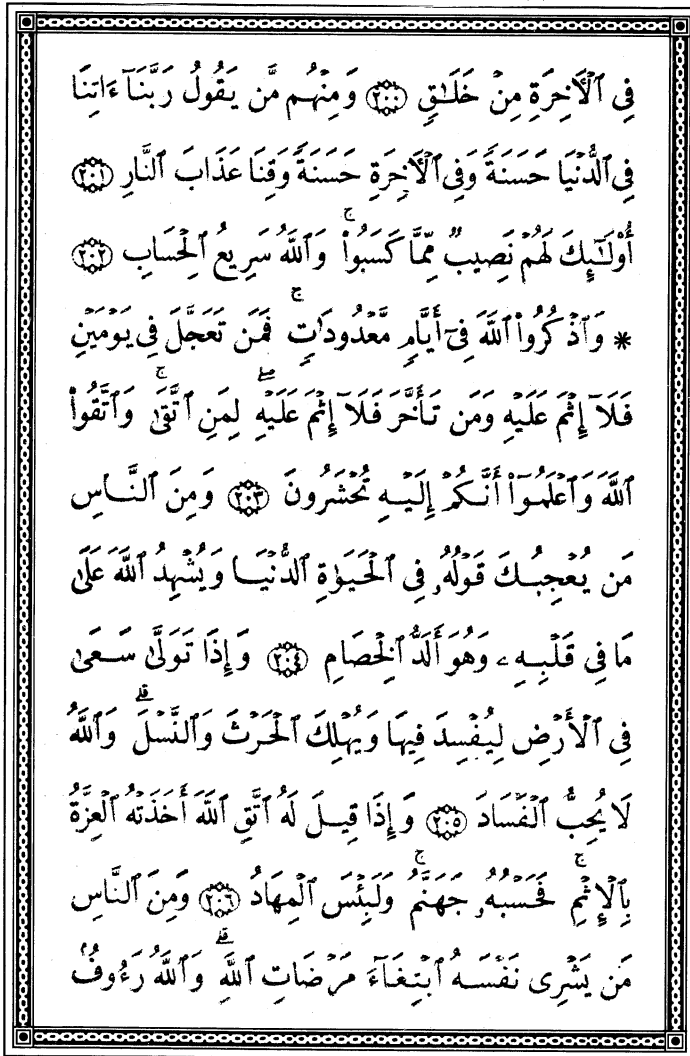 فِى ٱلْأَخِرَةِ مِنْ خَلَٰقٍ ﴿٢٠٠﴾ وَمِنْهُم مَّن يَقُولُ رَبَّنَآ ءَاتِنَا
فِى ٱلدُّنْيَا حَسَنَةً وَفِى ٱلْأَخِرَةِ حَسَنَةً وَقِنَا عَذَابَ ٱلنَّارِ ﴿٢٠١﴾
أُوْلَٰٓئِكَ لَهُمْ نَصِيبٌ مِّمَّا كَسَبُوا۟ ۚ وَٱللَّهُ سَرِيعُ ٱلْحِسَابِ ﴿٢٠٢﴾
* وَٱذْكُرُوا۟ ٱللَّهَ فِىٓ أَيَّامٍ مَّعْدُودَٰتٍ ۚ فَمَن تَعَجَّلَ فِى يَوْمَيْنِ
فَلَآ إِثْمَ عَلَيْهِ وَمَن تَأَخَّرَ فَلَآ إِثْمَ عَلَيْهِ ۖ لِمَنِ ٱتَّقَىٰ ۗ وَٱتَّقُوا۟
ٱللَّهَ وَٱعْلَمُوٓا۟ أَنَّكُمْ إِلَيْهِ تُحْشَرُونَ ﴿٢٠٣﴾ وَمِنَ ٱلنَّاسِ
مَن يُعْجِبُكَ قَوْلُهُۥ فِى ٱلْحَيَوٰةِ ٱلدُّنْيَا وَيُشْهِدُ ٱللَّهَ عَلَىٰ
مَا فِى قَلْبِهِۦ وَهُوَ أَلَدُّ ٱلْخِصَامِ ﴿٢٠٤﴾ وَإِذَا تَوَلَّىٰ سَعَىٰ
فِى ٱلْأَرْضِ لِيُفْسِدَ فِيهَا وَيُهْلِكَ ٱلْحَرْثَ وَٱلنَّسْلَ ۗ وَٱللَّهُ
لَا يُحِبُّ ٱلْفَسَادَ ﴿٢٠٥﴾ وَإِذَا قِيلَ لَهُ ٱتَّقِ ٱللَّهَ أَخَذَتْهُ ٱلْعِزَّةُ
بِٱلْإِثْمِ ۚ فَحَسْبُهُۥ جَهَنَّمُ ۚ وَلَبِئْسَ ٱلْمِهَادُ ﴿٢٠٦﴾ وَمِنَ ٱلنَّاسِ
مَن يَشْرِى نَفْسَهُ ٱبْتِغَآءَ مَرْضَاتِ ٱللَّهِ ۗ وَٱللَّهُ رَءُوفٌۢ